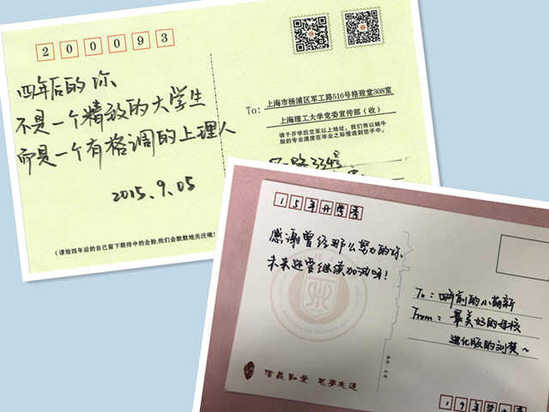 200093
四年后的你
不是一个精致的大学生
而是一个有格调的上理人
2015.9.05
To:
上海市杨浦区军工路516号格致堂308室
上海理工大学党委宣传部(收)
(请给四年后的自己留下期待中的金粉,我们会默默地关注哦!)
15年开学季
感谢曾经那么努力的你
未来还要继续加油呀!
To:四年前的小萌新
From:最美好的母校
进化版的刘赞~
信义勤爱 思学志远